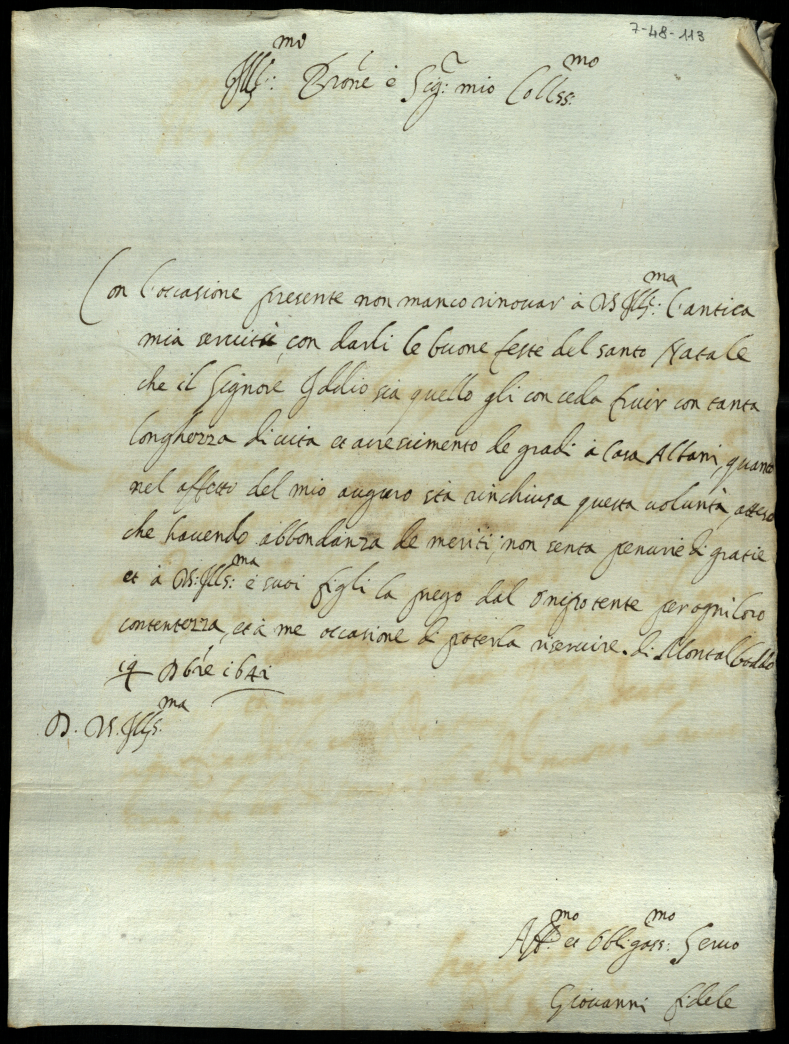 7-48-113
Ill:mo Prone è Sig:r mio Colless:mo
Con l'occasione presente non manco rinouar à VS Ill:ma l'antica
mia seruitù, con darli le buone feste del santo Natale
che il Signore Iddio sia quello gli conceda fruir con tanta
longhezza di uita et acrescimento de gradi à Casa Albani, quanto
nel affetto del mio augurio stà rinchiusa questa uoluntà, atteso
che hauendo abbondanza de meriti, non senta penurie di gratie
et à VS: Ills:ma è suoi figli la prego dal Onipotente per ogni loro
contentezza, et à me occasione di poterla riseruire. di Montalboddo
Xbre 1641
D. VS. Ills:ma
Aff:mo et Obligass:mo Seruo
Giouanni fidele